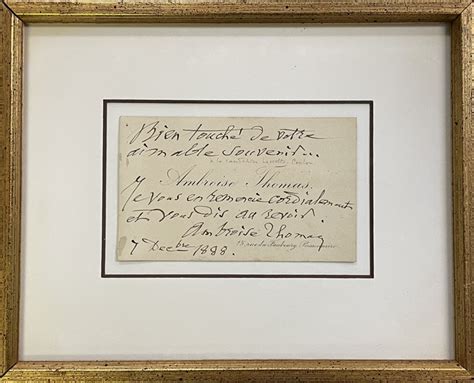 Bien touché de votre
aimable souvenir...
Ambroise Thomas.
Je vous en remercie cordialement
et vous dis au revoir.
Ambroise Thomas
7 Decbre 1888.